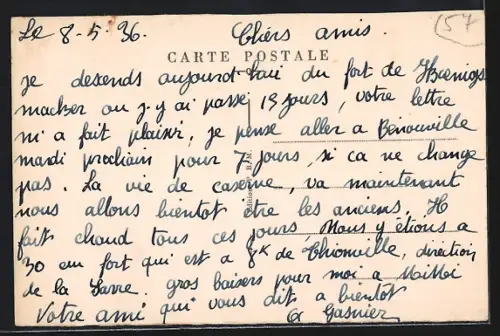 Le 8-5-36. Chers amis.
157
CARTE POSTALE
Je descends aujourd'hui du fort de Kœnigs
macker ou j-y ai passé 19 jours, votre lettre
m'a fait plaisir, je pense aller a Benouville
mardi prochain pour 7 jours, si ca ne change
pas. La vie de caserne, va maintenant
nous allons bientot être les anciens, Il
fait chaud tous ces jours, Nous y étions a
30 au fort qui est a 8K de Thionville, direction
de la Sarre. gros baisers pour moi a
Votre ami qui vous dit a bientot
G Gasnier